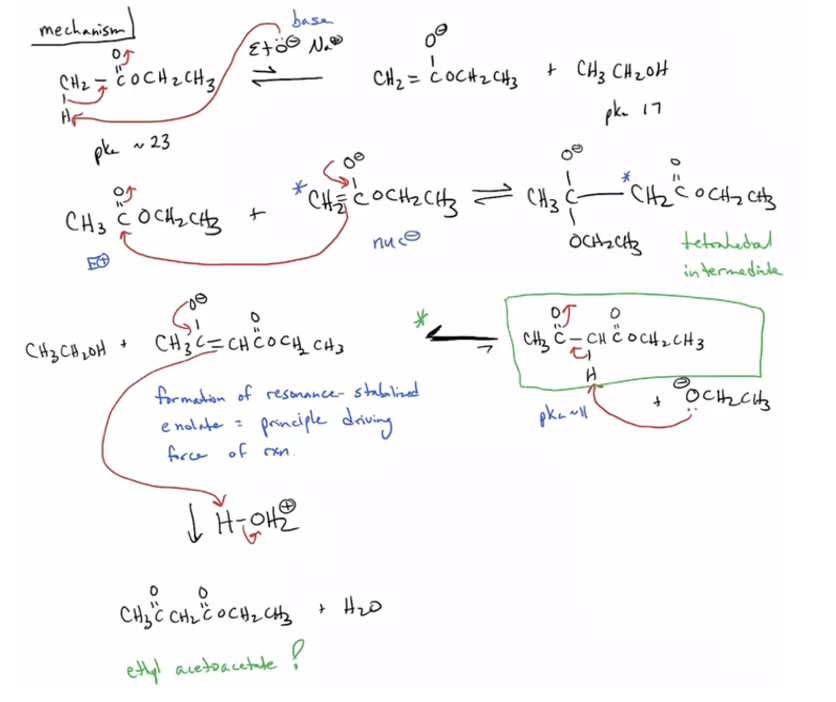 mechanism
base
O
EtO⊖ Na⊕
O⊖
CH₂ – C OCH₂CH₃
CH₂ = C OCH₂CH₃ + CH₃CH₂OH
H
pka ~23
pka 17
O
O⊖
O⊖
O
CH₃ C OCH₂CH₃ + * CH₂ = C OCH₂CH₃ ⇌ CH₃ C — * CH₂ C OCH₂CH₃
E⊕
nuc⊖
OCH₂CH₃
tetrahedal
intermediate
O⊖
O
O
O
CH₃CH₂OH + CH₃ C = CH C OCH₂CH₃
*
CH₃ C – CH C OCH₂CH₃
H
+ ⊖OCH₂CH₃
pka ~11
formation of resonance-stabilized
enolate = principle driving
force of rxn.
↓ H–OH₂⊕
O
O
CH₃ C CH₂ C OCH₂CH₃ + H₂O
ethyl acetoacetate!